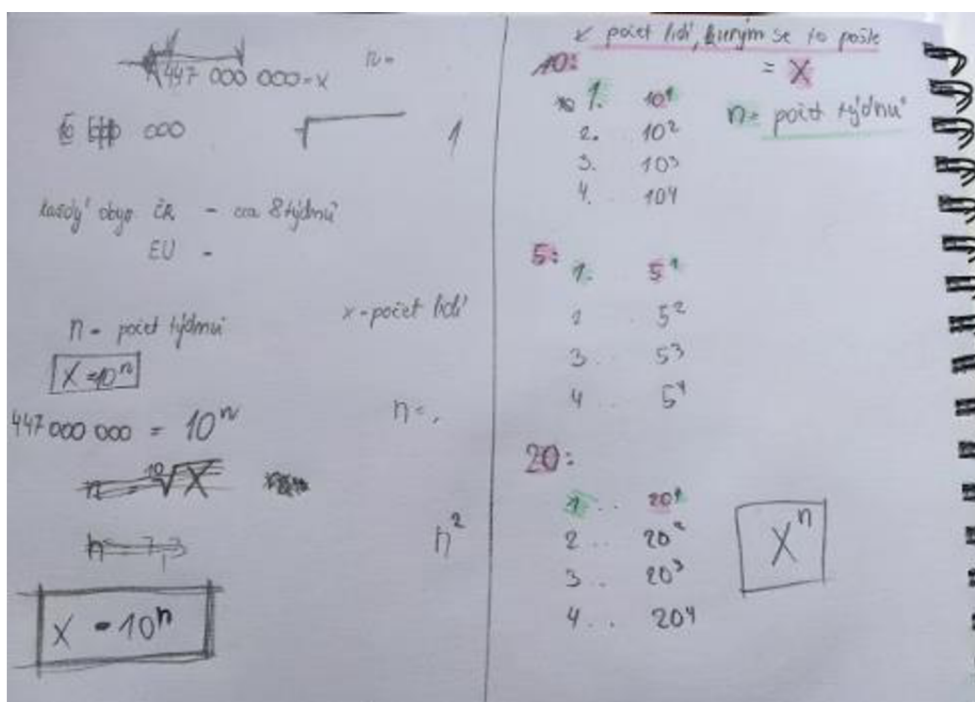 447 000 000 = x
n =
000
1
každý obyv. ČR - cca 8 týdnů
EU -
n - počet týdnů
x - počet lidí
X = 10ⁿ
447 000 000 = 10ⁿ
n = .
n = ¹⁰√X
n = 7,3
n²
X = 10ⁿ
počet lidí, kterým se to pošle
= X
n = počet týdnů
10:
1. 10¹
2. 10²
3. 10³
4. 10⁴
5:
1. 5¹
2 . 5²
3 . . 5³
4 . . 5⁴
20:
1 . . 20¹
2 . . 20²
3 . . 20³
4 . . 20⁴
Xⁿ